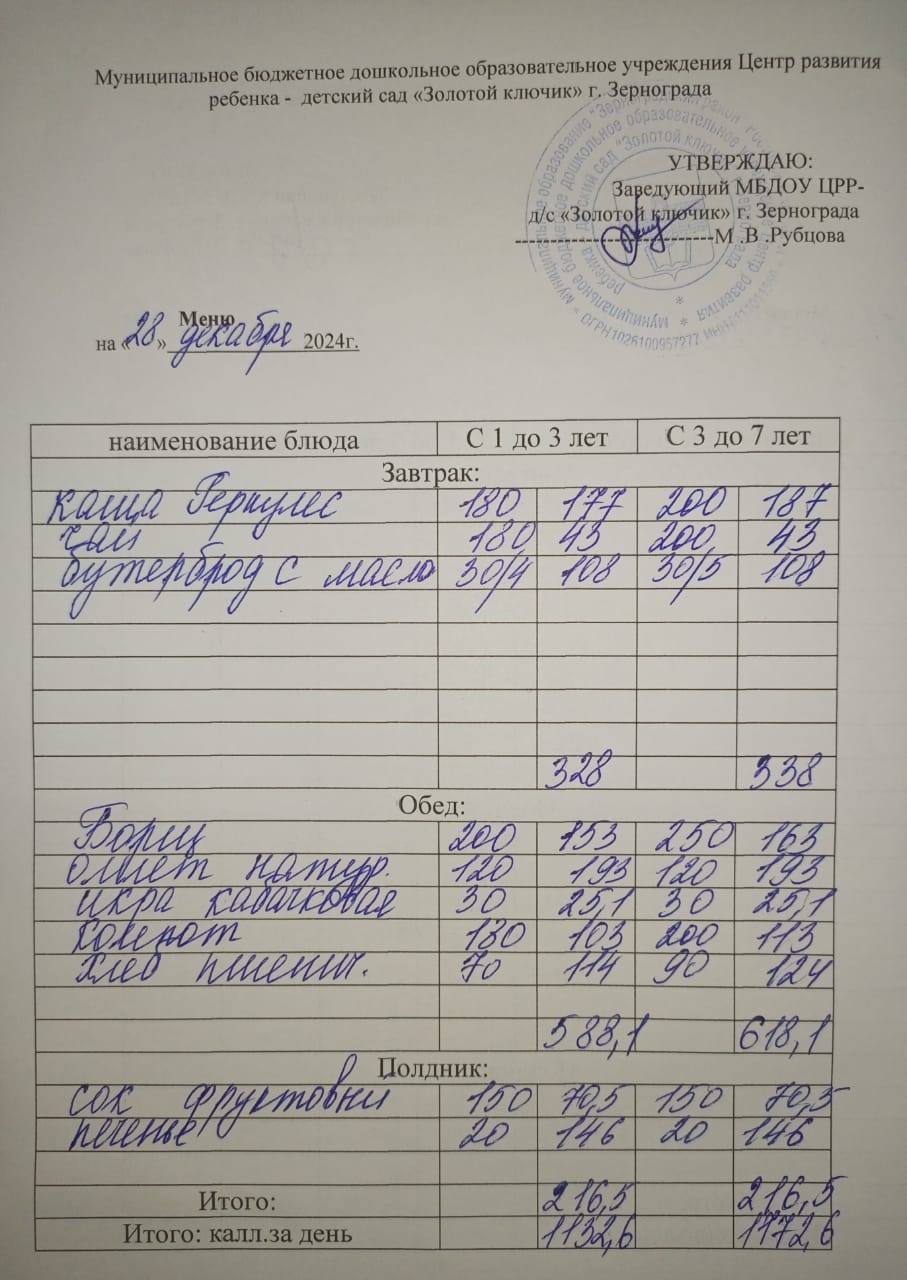 Муниципальное бюджетное дошкольное образовательное учреждения Центр развития
ребенка - детский сад «Золотой ключик» г. Зернограда
УТВЕРЖДАЮ:
Заведующий МБДОУ ЦРР-
д/с «Золотой ключик» г. Зернограда
----------------------------М .В .Рубцова
Меню
на «28» декабря 2024г.
наименование блюда С 1 до 3 лет С 3 до 7 лет
Завтрак:
каша Геркулес 180 177 200 187
чай 180 43 200 43
бутерброд с масло 30/4 108 30/5 108
328 338
Обед:
Борщ 200 153 250 163
омлет натур. 120 193 120 193
икра кабачковая 30 25,1 30 25,1
компот 180 103 200 113
хлеб пшенич. 70 114 90 124
588,1 618,1
Полдник:
сок фруктовый 150 70,5 150 70,5
печенье 20 146 20 146
Итого: 216,5 216,5
Итого: калл.за день 1132,6 1172,6